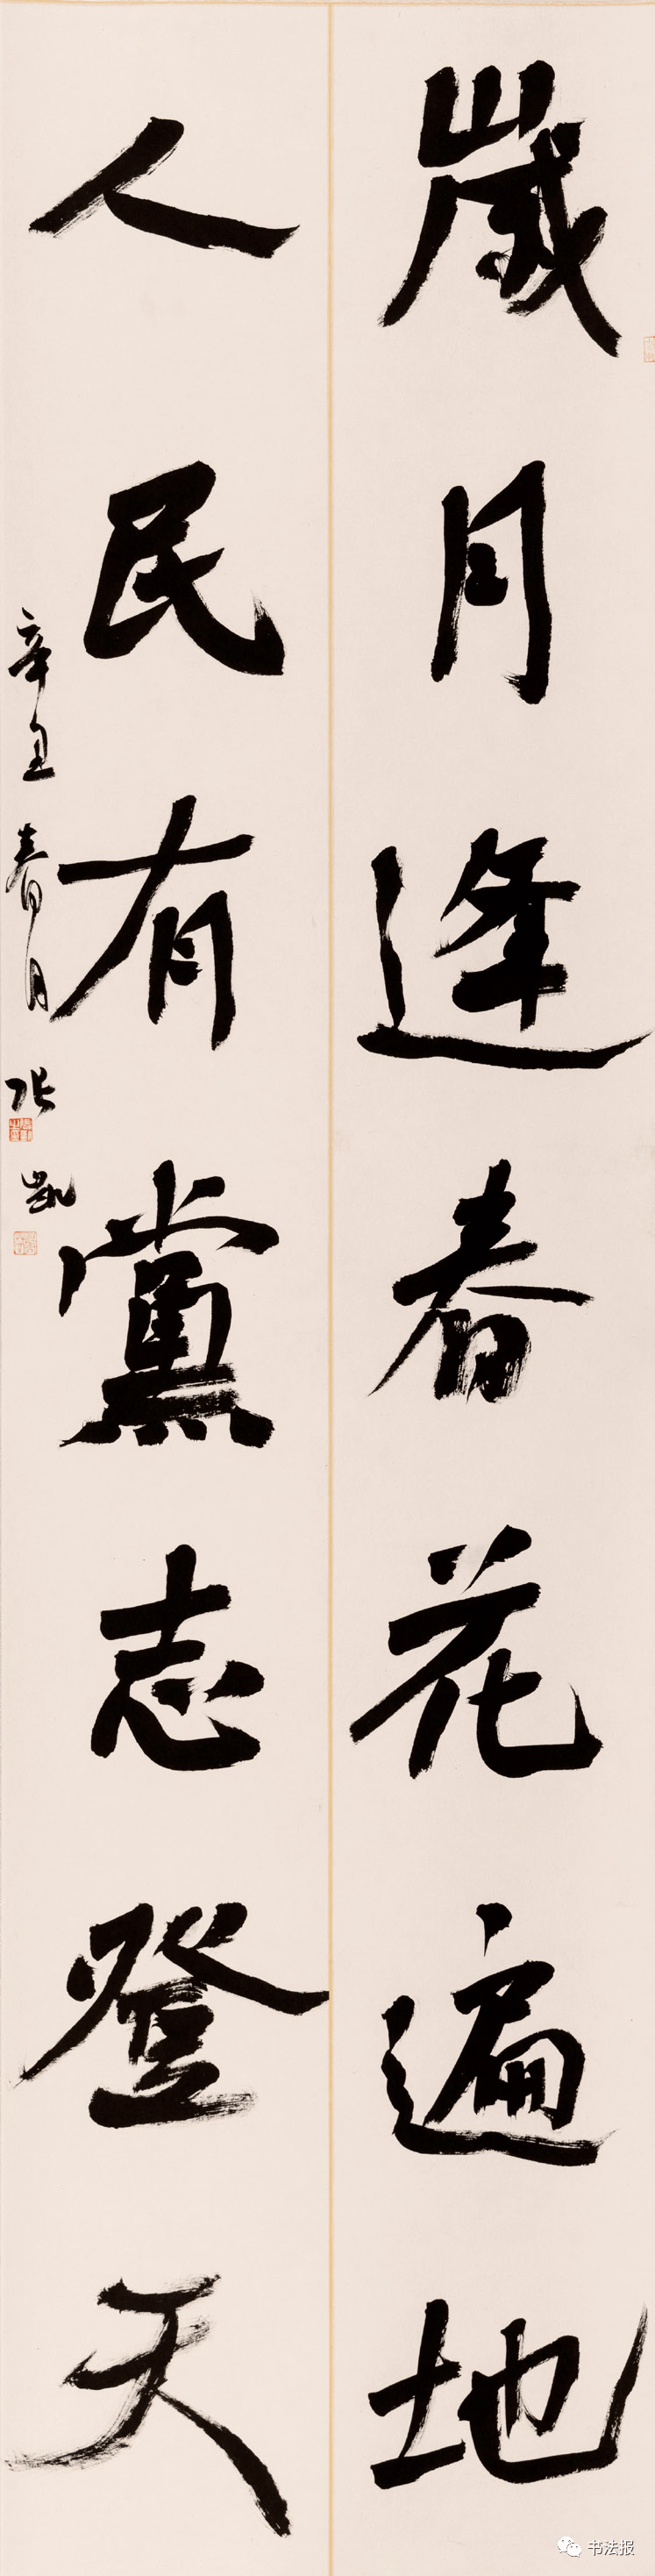 歲月逢春花遍地
人民有黨志登天
辛丑春月 張凱
书法报